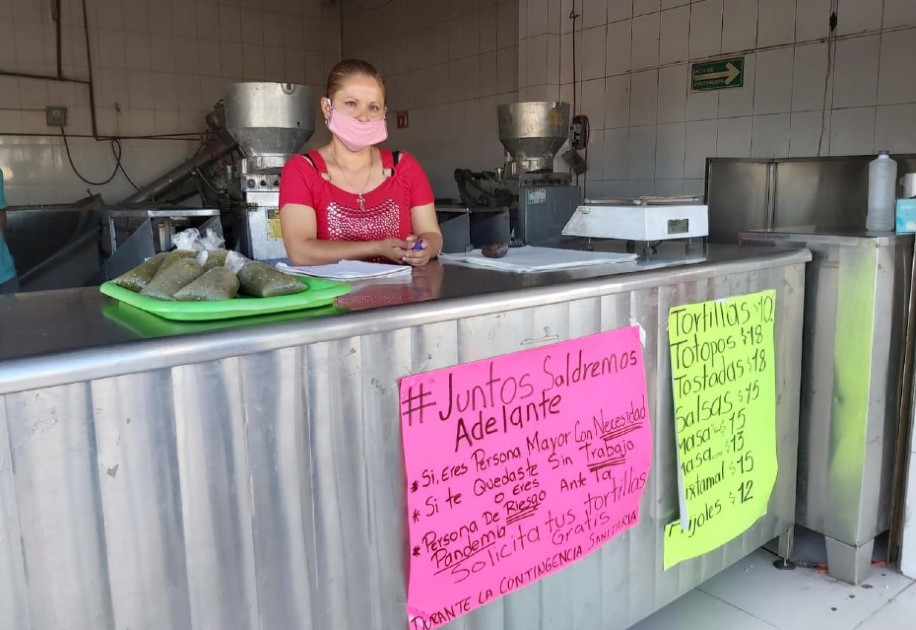 #Juntos Saldremos
Adelante
* Si, Eres Persona Mayor Con Necesidad
* Si te Quedaste Sin Trabajo
o Eres
* Persona De Riesgo Ante Ta
Pandemia
Solicita tus tortillas
Gratis
DURANTE LA CONTINGENCIA SANITARIA
Tortillas $12
Totopos $18
Tostadas $18
Salsas $15
Masa $15
Masa $13
ixtamal $15
Frijoles $12